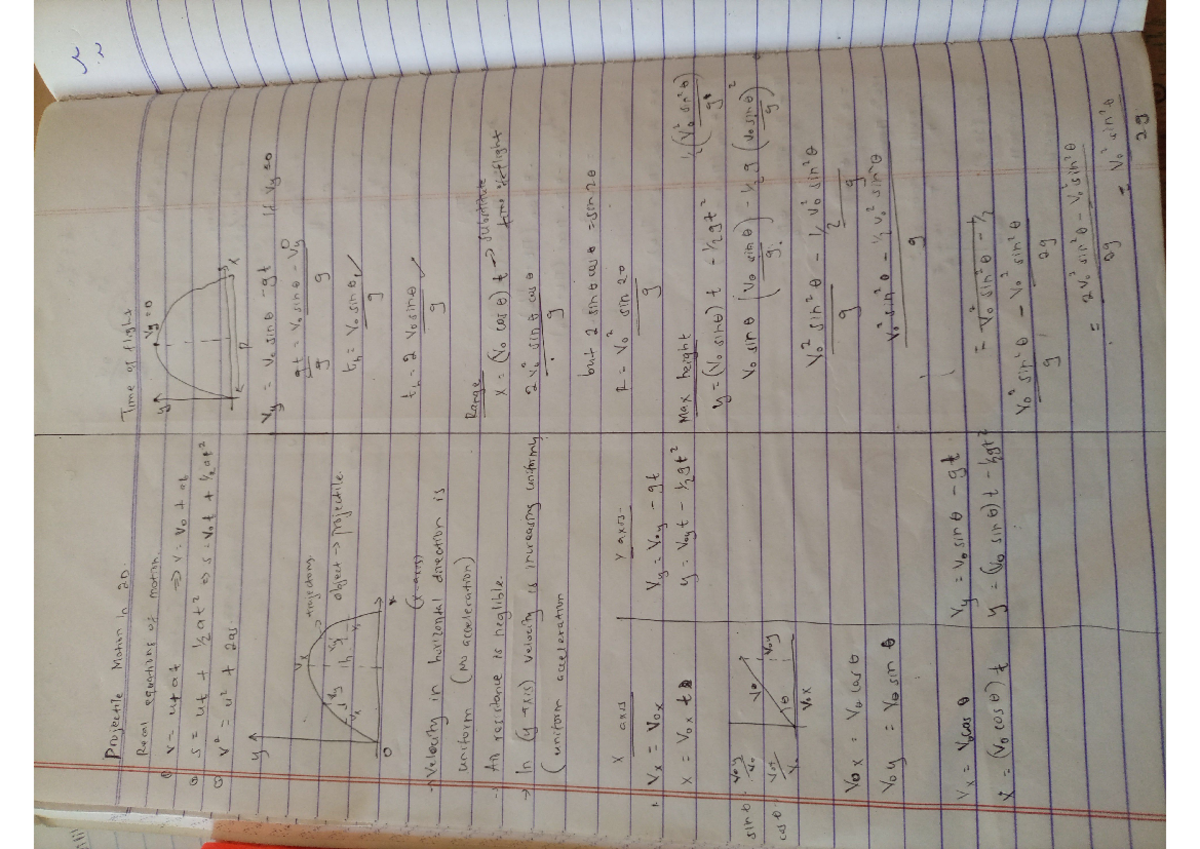 Projectile Motion in 2D.
Recall equations of motion.
① v = u + at ⇒ v = v₀ + at
② s = ut + ½at² ⇒ s = v₀t + ½at²
③ v² = u² + 2as
y
vx
→ trajectory
vy
h
object → projectile.
vx
O
x
(x-axis)
→ Velocity in horizontal direction is
uniform (No acceleration)
→ Air resistance is neglible.
→ In (y-axis) velocity is increasing uniformly
(uniform acceleration
X axis
Vx = V₀x
x = V₀x t
Y axis
Vy = V₀y - gt
y = V₀y t - ½gt²
sin θ = V₀y/V₀
cos θ = V₀x/V₀
V₀
V₀y
θ
V₀x
V₀x = V₀ cos θ
V₀y = V₀ sin θ
Vx = V₀ cos θ
x = (V₀ cos θ) t
Vy = V₀ sin θ - gt
y = (V₀ sin θ) t - ½gt²
Time of flight
y
Vy = 0
x
R
Vy = V₀ sin θ - gt if Vy = 0
gt/g = V₀ sin θ - Vy⁰/g
th = V₀ sin θ/g ✓
th = 2 V₀ sin θ/g ✓
Range
x = (V₀ cos θ) t → substitute
time of flight
2 V₀² sin θ cos θ/g
but 2 sin θ cos θ = sin 2θ
R = V₀² sin 2θ/g
Max height
y = (V₀ sin θ) t - ½gt²
½(V₀² sin² θ/g)
V₀ sin θ (V₀ sin θ/g) - ½ g (V₀ sin θ/g)²
V₀² sin² θ/g - ½ V₀² sin² θ/g
V₀² sin² θ - ½ V₀² sin² θ/g
= V₀² sin² θ - ½
V₀² sin² θ/g - V₀² sin² θ/2g
= 2 V₀² sin² θ - V₀² sin² θ/2g
= V₀² sin² θ/2g